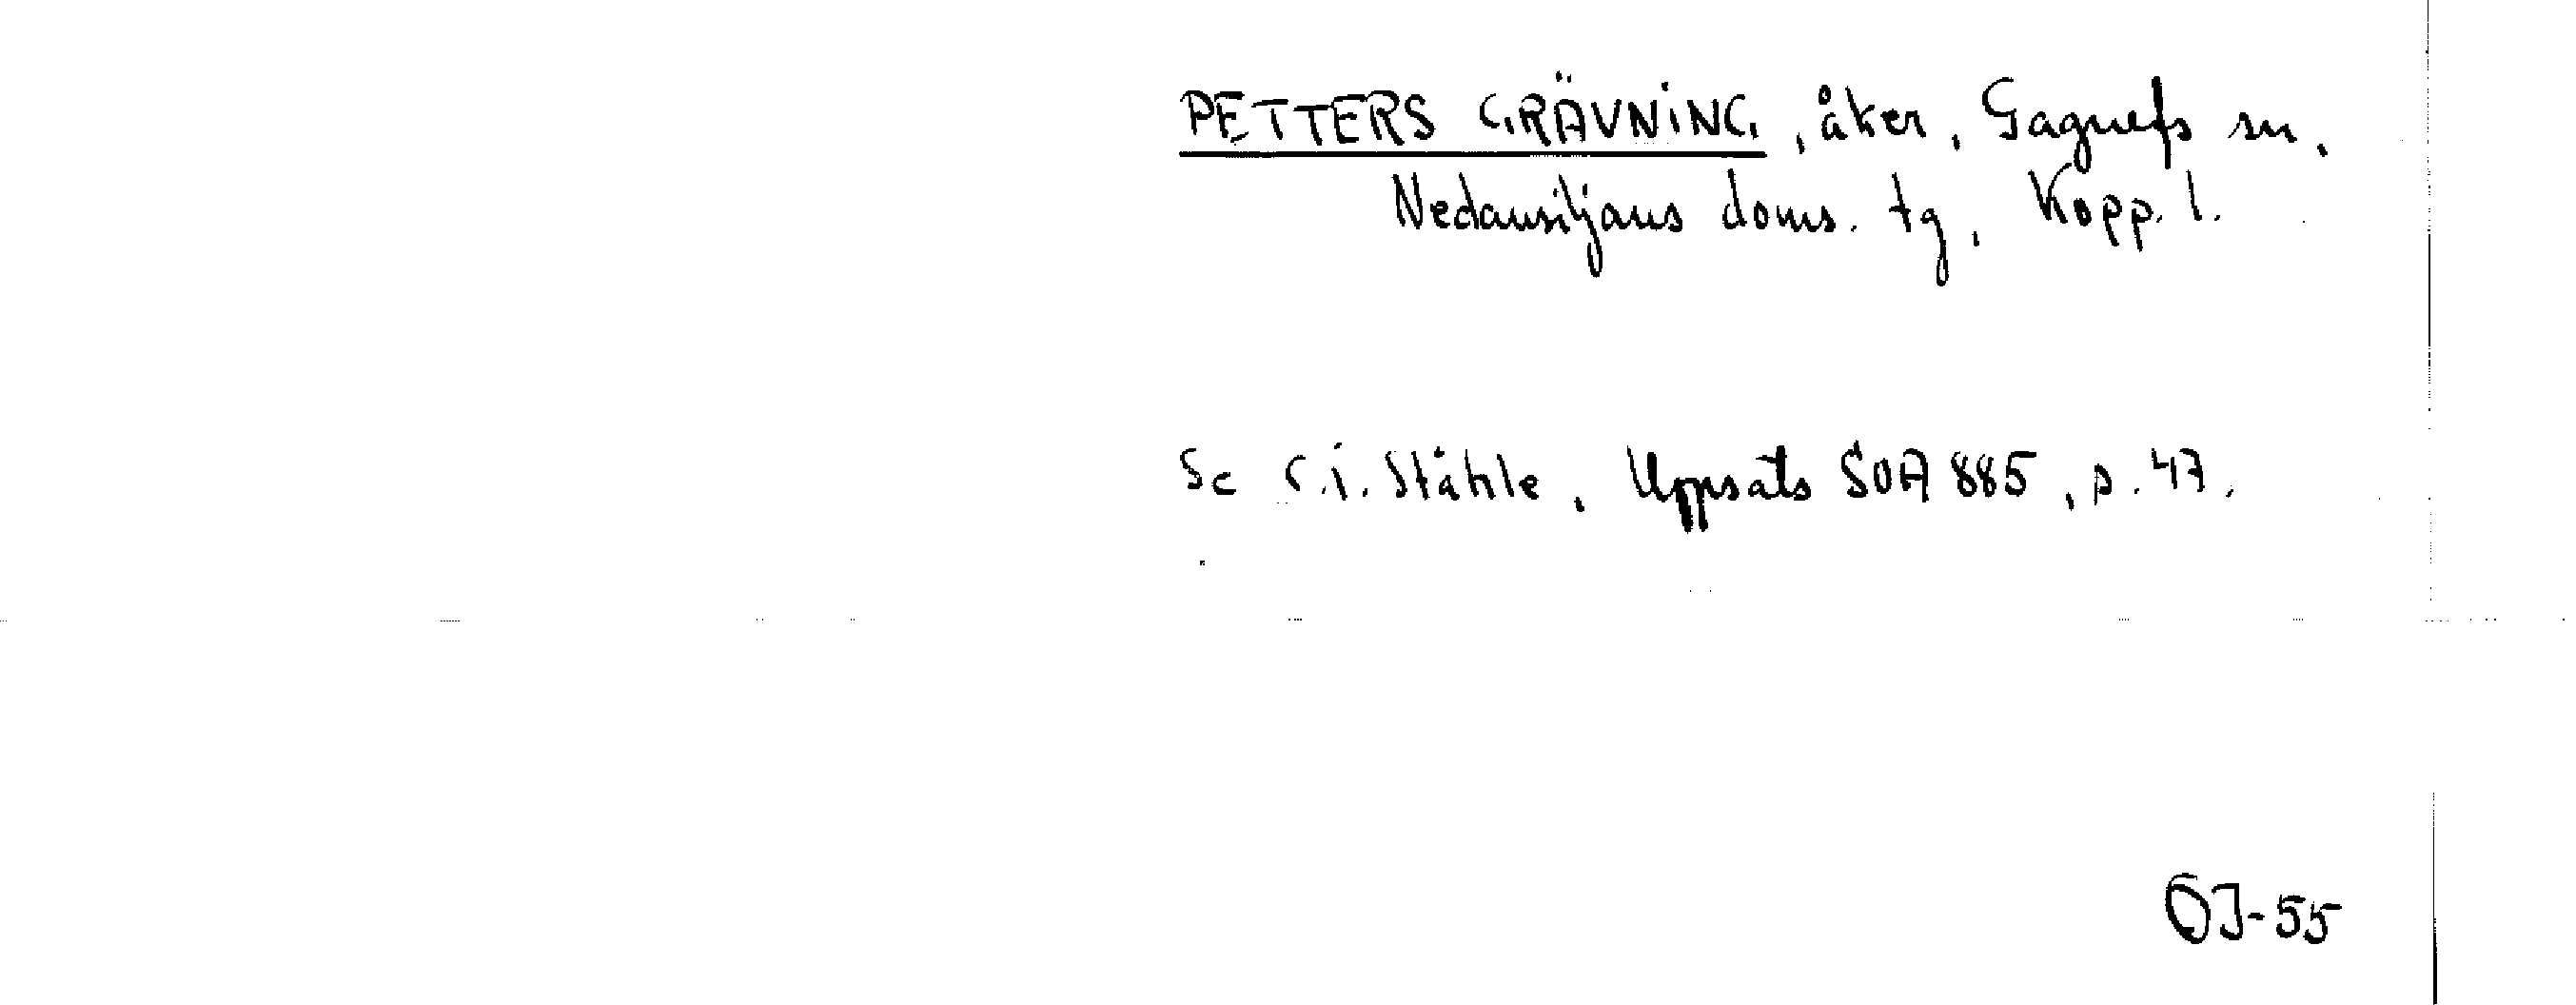 PETTERS GRÄVNING, åker, Gagnefs sn,
Nedansiljans doms. tg, Kopp. l.
Se C.I. Ståhle, Uppsats SOA 885, s. 47.
OJ-55